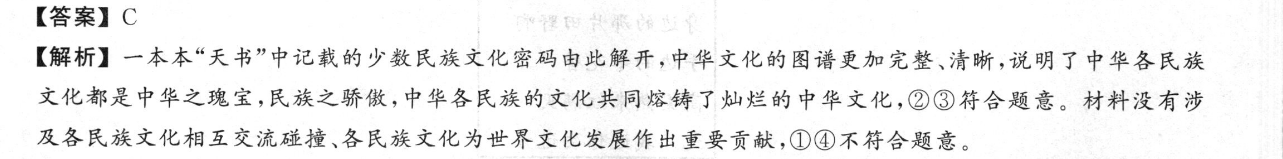 【答案】C
【解析】一本本“天书”中记载的少数民族文化密码由此解开,中华文化的图谱更加完整、清晰,说明了中华各民族
文化都是中华之瑰宝,民族之骄傲,中华各民族的文化共同熔铸了灿烂的中华文化,②③符合题意。材料没有涉
及各民族文化相互交流碰撞、各民族文化为世界文化发展作出重要贡献,①④不符合题意。